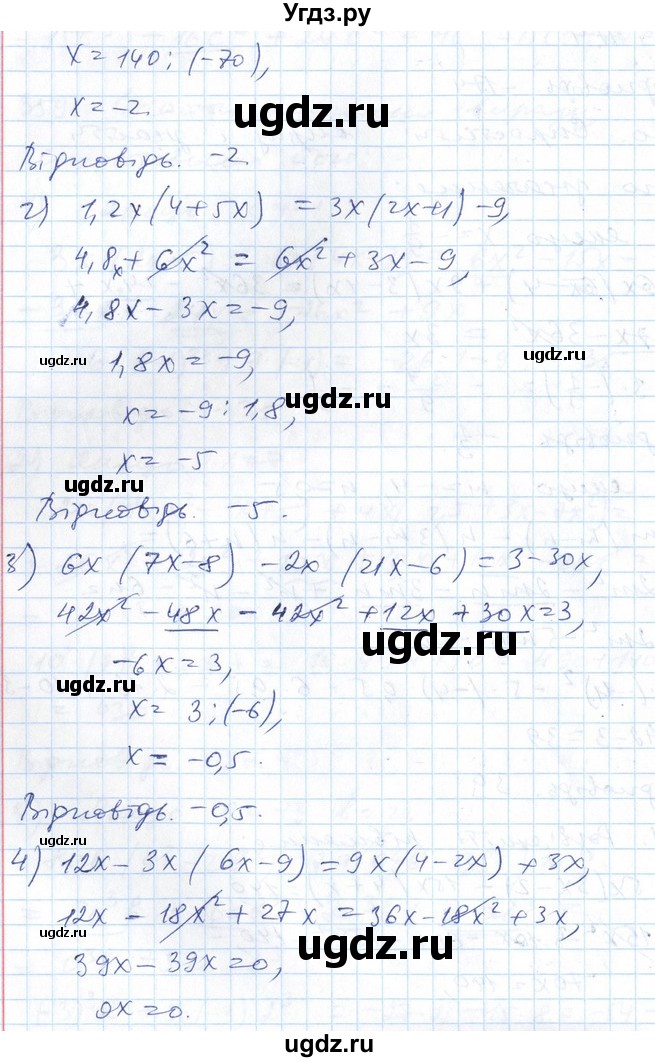 Угдз.ру
x = 140 : (-70),
x = -2.
Відповідь. -2.
2) 1,2x(4+5x) = 3x(2x+1) - 9,
4,8x + 6x² = 6x² + 3x - 9,
4,8x - 3x = -9,
1,8x = -9,
x = -9 : 1,8,
x = -5
Відповідь. -5.
3) 6x (7x-8) - 2x (21x-6) = 3 - 30x,
42x² - 48x - 42x² + 12x + 30x = 3,
-6x = 3,
x = 3 : (-6),
x = -0,5.
Відповідь. -0,5.
4) 12x - 3x (6x-9) = 9x(4-2x) + 3x,
12x - 18x² + 27x = 36x - 18x² + 3x,
39x - 39x = 0,
0x = 0.
ugdz.ru
ugdz.ru
ugdz.ru
ugdz.ru
ugdz.ru
ugdz.ru
ugdz.ru
ugdz.ru
ugdz.ru
ugdz.ru
ugdz.ru
ugdz.ru